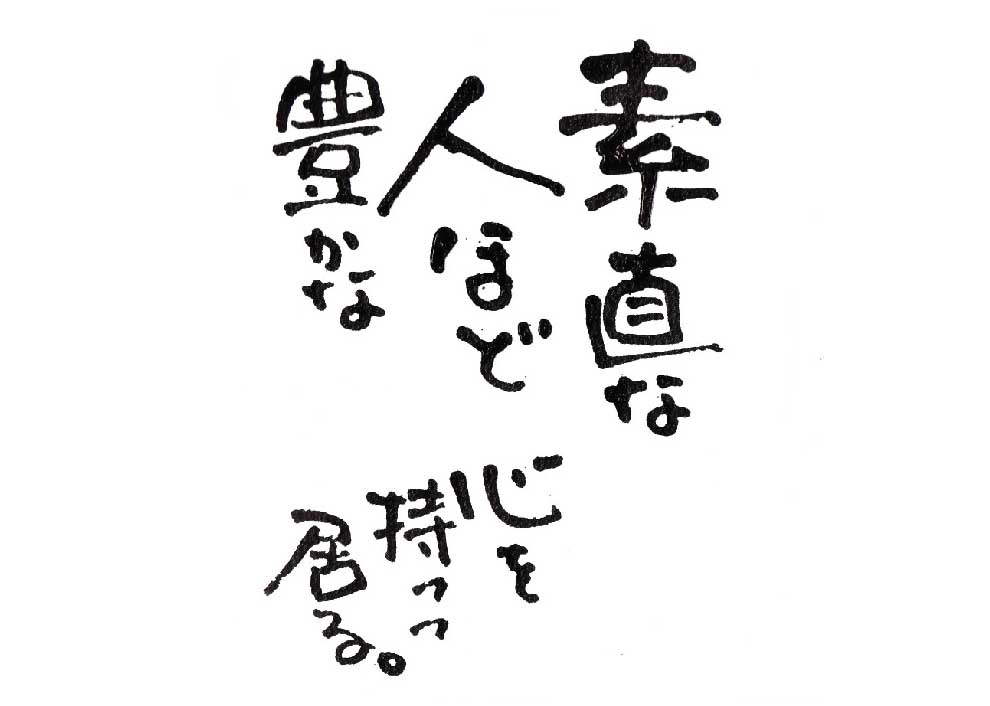 素直な
人ほど
豊かな
心を
持つつ
居る。